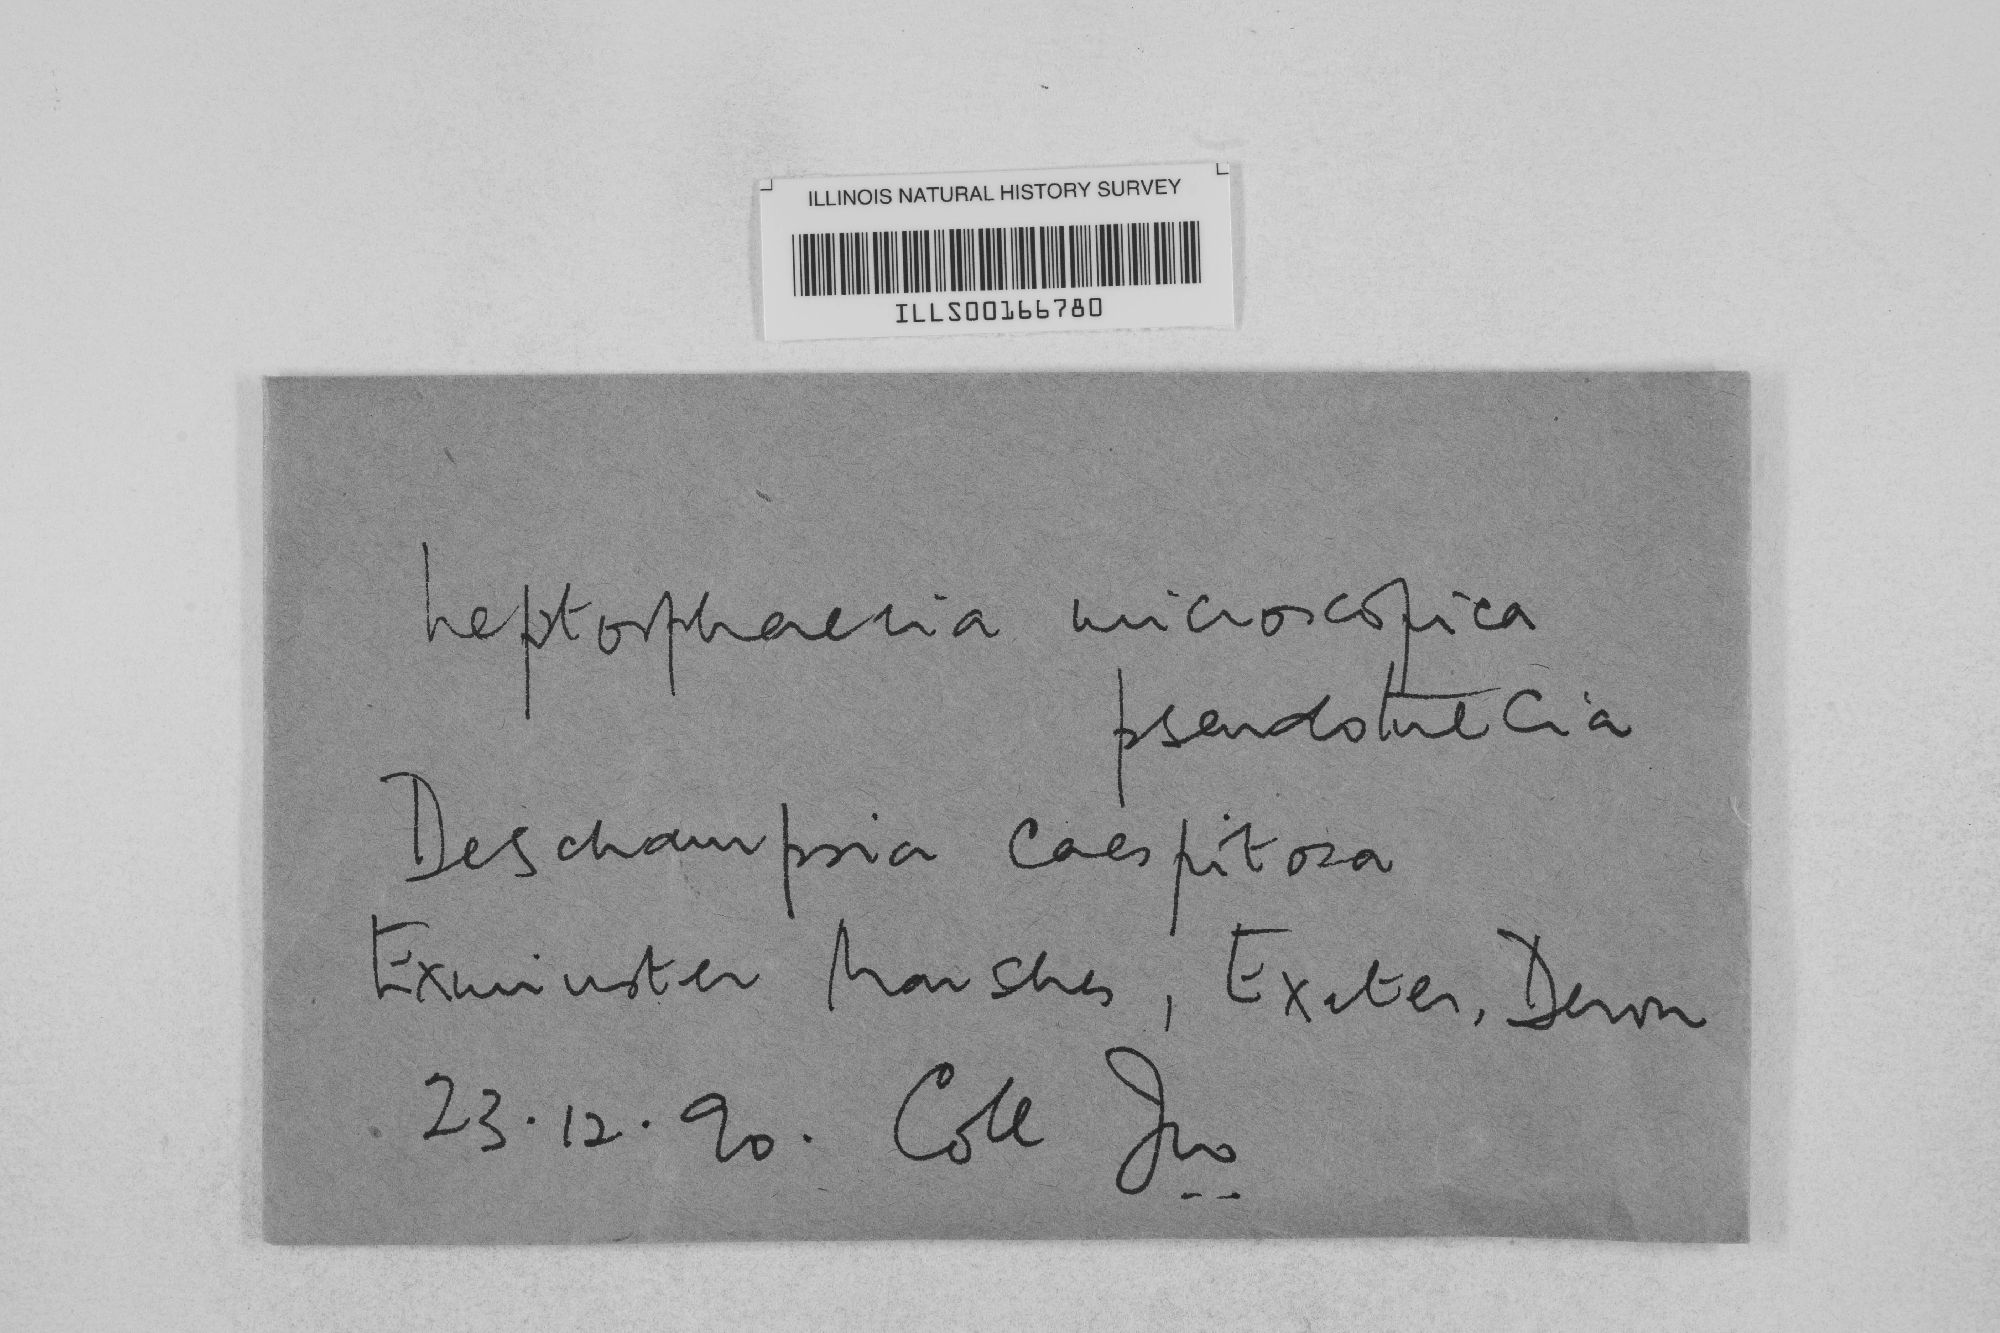 ILLINOIS NATURAL HISTORY SURVEY
ILLS00166780
Leptosphaeria microscopica
pseudothecia
Deschampsia caespitosa
Exminster Marshes, Exeter, Devon
23.12.90. Coll